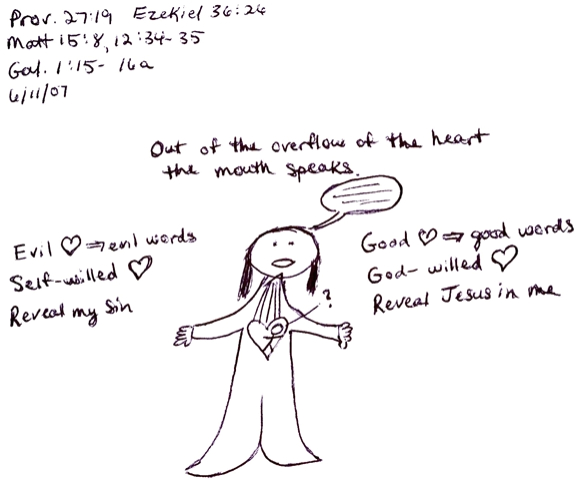 Prov. 27:19 Ezekiel 36:26
Matt 15:8, 12:34-35
Gal. 1:15-16a
6/11/07
Out of the overflow of the heart
the mouth speaks.
Evil ♡ ⇒ evil words
Self-willed ♡
Reveal my Sin
Good ♡ ⇒ good words
God-willed ♡
Reveal Jesus in me
?